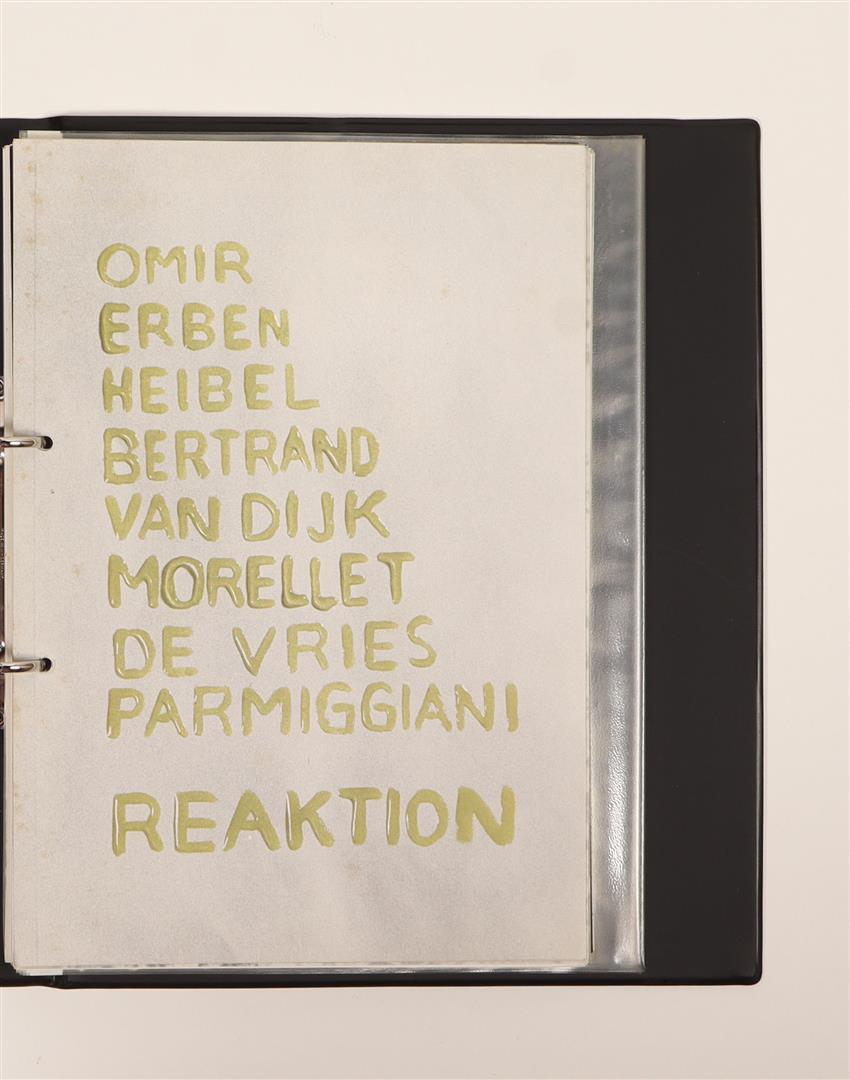 OMIR
ERBEN
HEIBEL
BERTRAND
VAN DIJK
MORELLET
DE VRIES
PARMIGGIANI
REAKTION